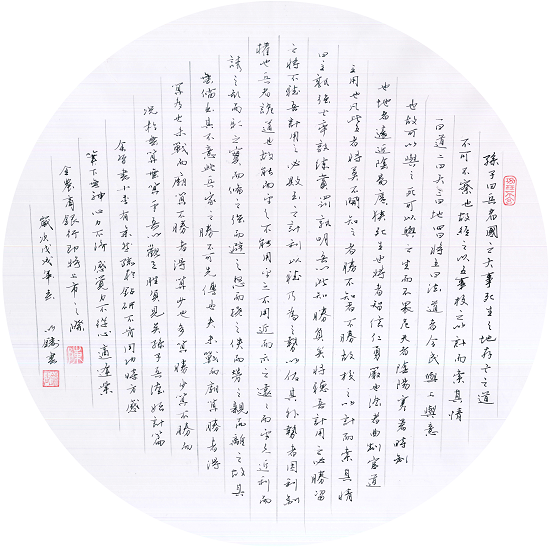 孫子曰兵者國之大事死生之地存亡之道
不可不察也故經之以五事校之以計而索其情
一曰道二曰天三曰地四曰將五曰法道者令民與上同意
也故可以與之死可以與之生而不畏危天者陰陽寒暑時制
也地者遠近險易廣狹死生也將者智信仁勇嚴也法者曲制官道
主用也凡此五者將莫不聞知之者勝不知者不勝故校之以計而索其情
曰主孰強士卒孰練賞罰孰明吾以此知勝負矣將聽吾計用之必勝留
之將不聽吾計用之必敗去之計利以聽乃為之勢以佐其外勢者因利制
權也兵者詭道也故能而示之不能用而示之不用近而示之遠遠而示之近利而
誘之亂而取之實而備之強而避之怒而撓之佚而勞之親而離之攻其
無備出其不意此兵家之勝不可先傳也夫未戰而廟算勝者得
算多也未戰而廟算不勝者得算少也多算勝少算不勝而
況於無算乎吾以此觀之勝負見矣孫子兵法始計篇
余學書小有鑽研不
筆下無神心力不濟感覺力不從心適逢
商銀行即將上市之際
歲次戊戌年書